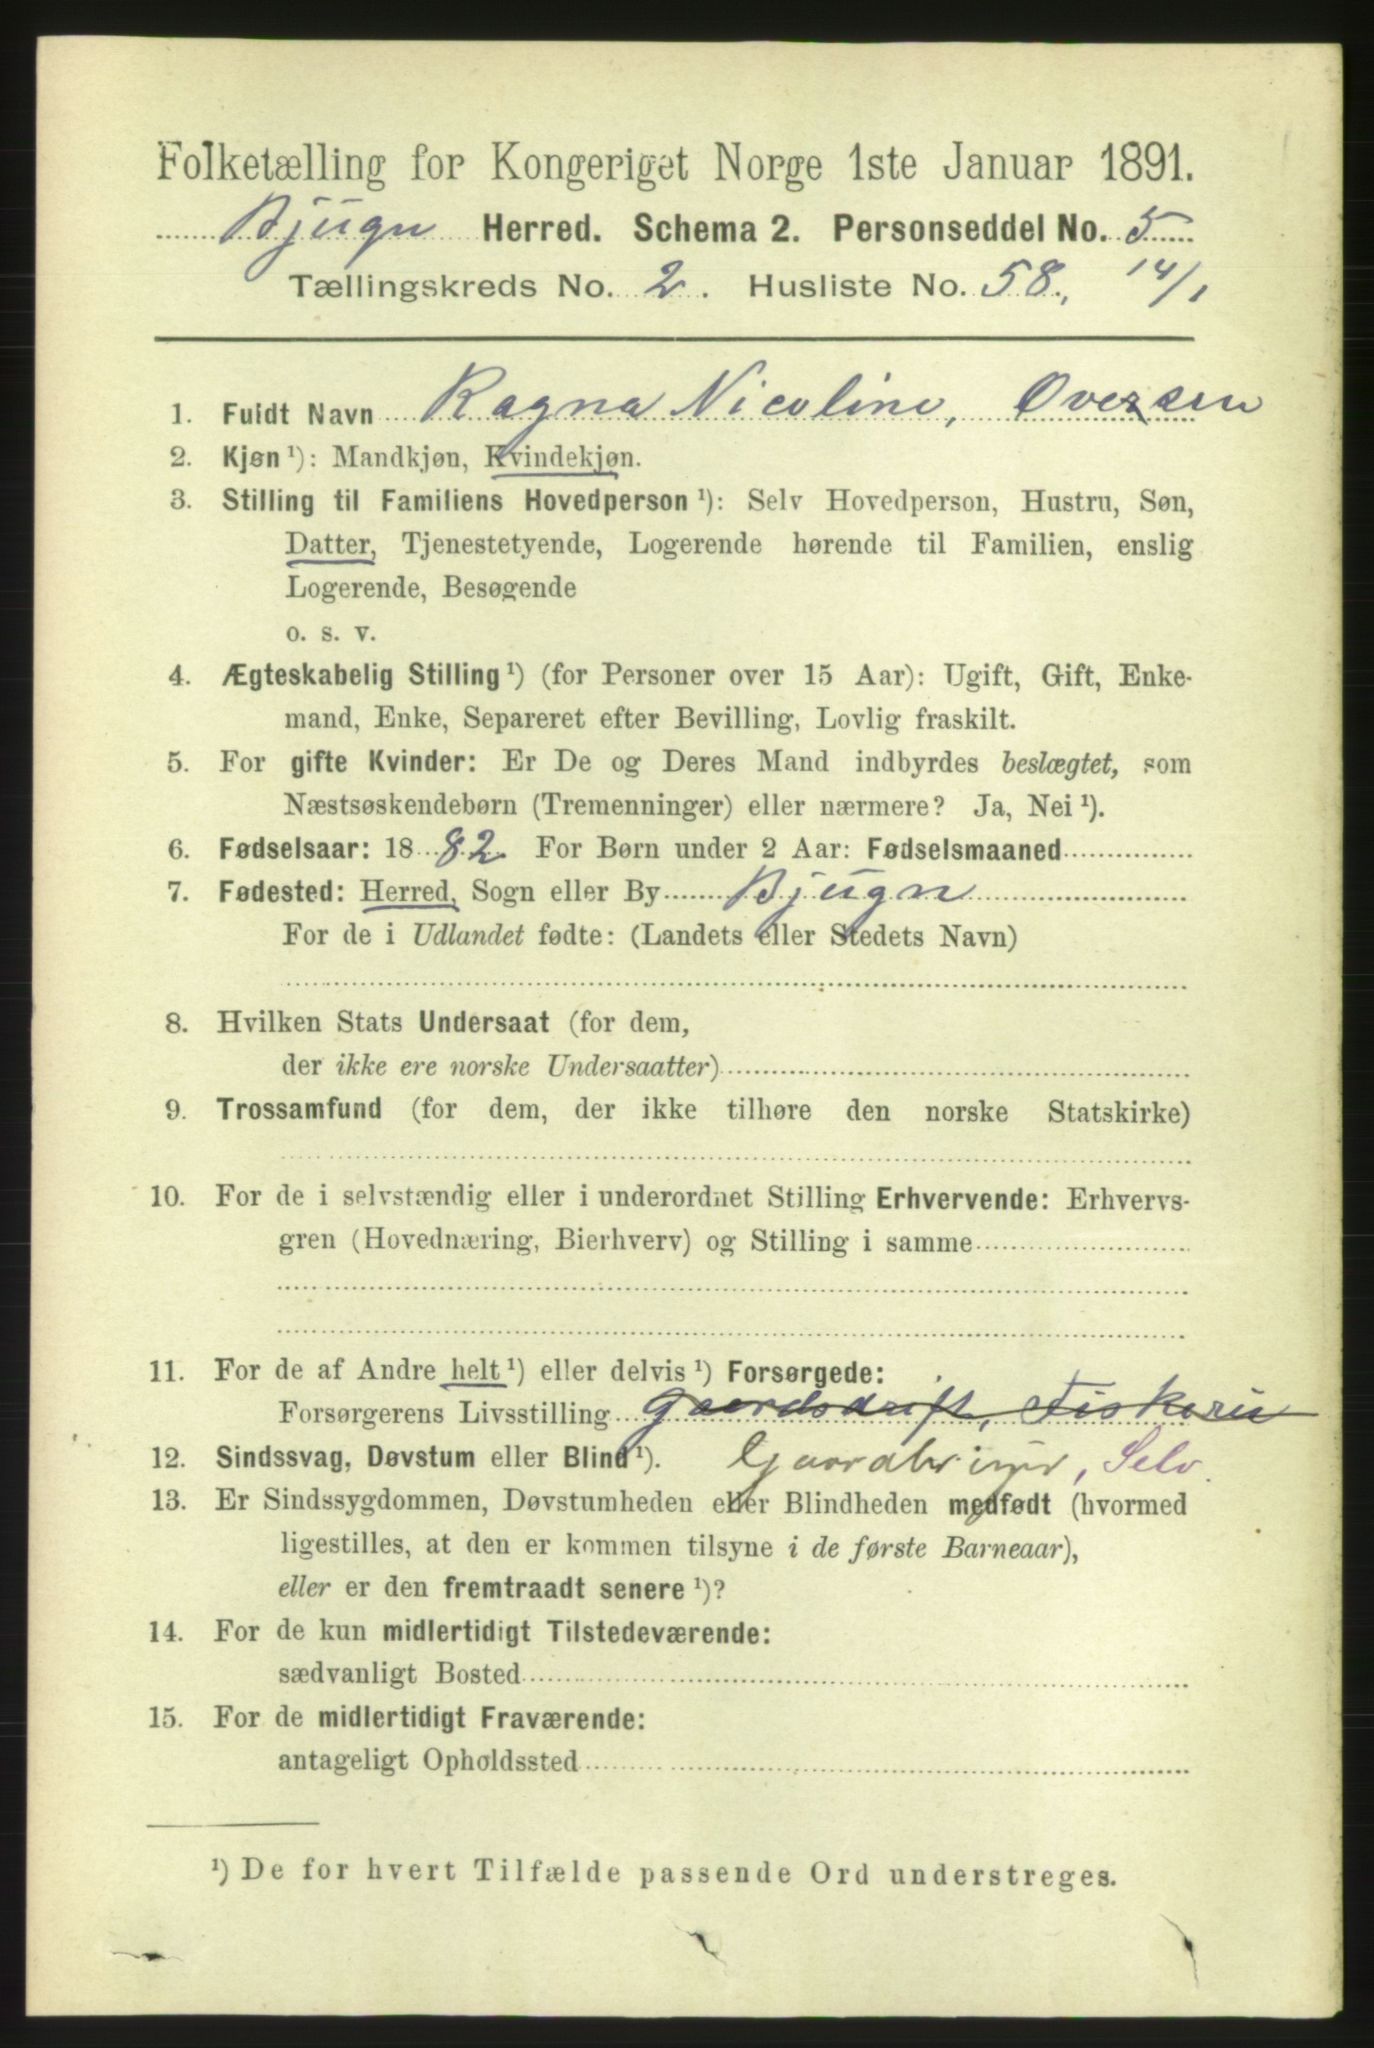 Folketælling for Kongeriget Norge 1ste Januar 1891.
Bjugn Herred. Schema 2. Personseddel No. 5
Tællingskreds No. 2. Husliste No. 58., 14/1
1. Fuldt Navn Ragna Nicoline, Ovesen
2. Kjøn ¹): Mandkjøn, Kvindekjøn.
3. Stilling til Familiens Hovedperson ¹): Selv Hovedperson, Hustru, Søn,
Datter, Tjenestetyende, Logerende hørende til Familien, enslig
Logerende, Besøgende
o. s. v.
4. Ægteskabelig Stilling ¹) (for Personer over 15 Aar): Ugift, Gift, Enke-
mand, Enke, Separeret efter Bevilling, Lovlig fraskilt.
5. For gifte Kvinder: Er De og Deres Mand indbyrdes beslægtet, som
Næstsøskendebørn (Tremenninger) eller nærmere? Ja, Nei ¹).
6. Fødselsaar: 1882 For Børn under 2 Aar: Fødselsmaaned
7. Fødested: Herred, Sogn eller By Bjugn
For de i Udlandet fødte: (Landets eller Stedets Navn)
8. Hvilken Stats Undersaat (for dem,
der ikke ere norske Undersaatter)
9. Trossamfund (for dem, der ikke tilhøre den norske Statskirke)
10. For de i selvstændig eller i underordnet Stilling Erhvervende: Erhvervs-
gren (Hovednæring, Bierhverv) og Stilling i samme
11. For de af Andre helt ¹) eller delvis ¹) Forsørgede:
Forsørgerens Livsstilling Gaardsdrift, Fiskeri
12. Sindssvag, Døvstum eller Blind ¹). Gaardbruger, Selv.
13. Er Sindssygdommen, Døvstumheden eller Blindheden medfødt (hvormed
ligestilles, at den er kommen tilsyne i de første Barneaar),
eller er den fremtraadt senere ¹)?
14. For de kun midlertidigt Tilstedeværende:
sædvanligt Bosted
15. For de midlertidigt Fraværende:
antageligt Opholdssted
¹) De for hvert Tilfælde passende Ord understreges.